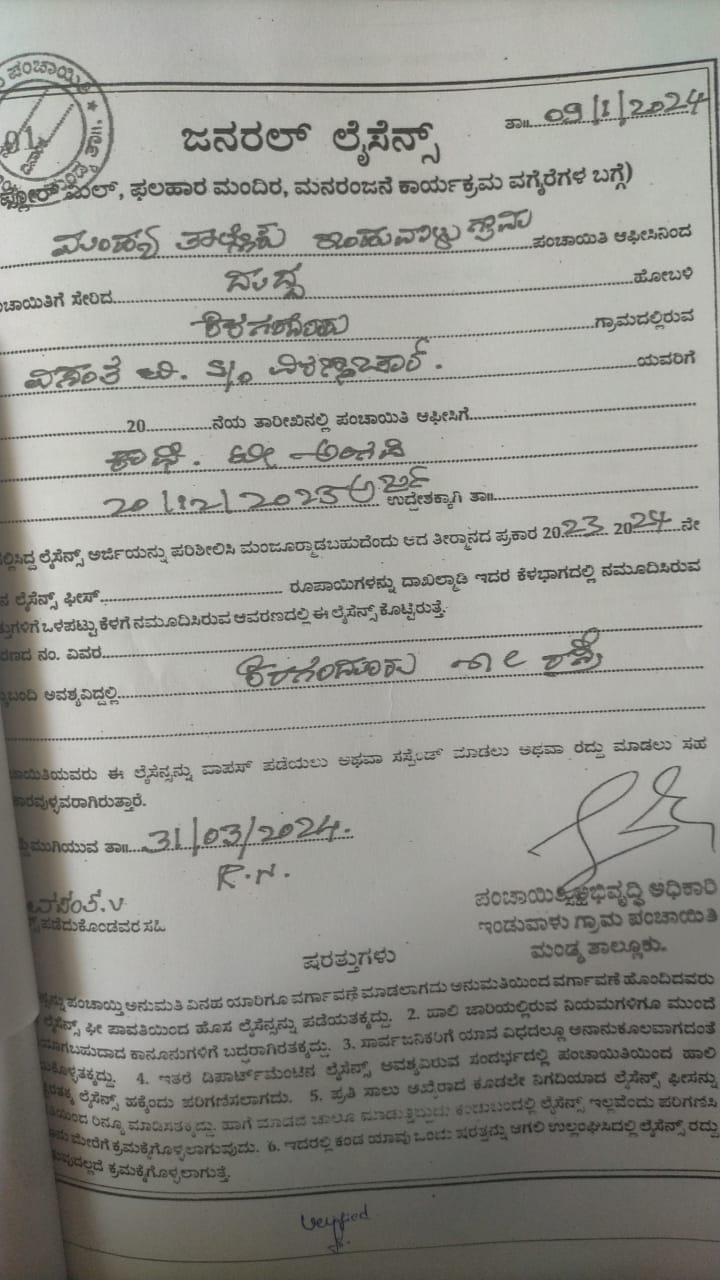 ಪಂಚಾಯಿತಿ
ತಾ॥ 09/1/2024
ಜನರಲ್ ಲೈಸೆನ್ಸ್
ಫ್ಲೋರ್ ಮಿಲ್, ಫಲಹಾರ ಮಂದಿರ, ಮನರಂಜನೆ ಕಾರ್ಯಕ್ರಮ ವಗೈರೆಗಳ ಬಗ್ಗೆ)
ಮಂಡ್ಯ ತಾಲ್ಲೂಕು ಇಂಡುವಾಳು ಗ್ರಾಮ ಪಂಚಾಯಿತಿ ಆಫೀಸಿನಿಂದ
ಚಾಯಿತಿಗೆ ಸೇರಿದ ಹೋಬಳಿ
ಕಿರಗಂದೂರು ಗ್ರಾಮದಲ್ಲಿರುವ
ವಸಂತ ವಿ. S/o ಯವರಿಗೆ
20 ನೆಯ ತಾರೀಖಿನಲ್ಲಿ ಪಂಚಾಯಿತಿ ಆಫೀಸಿಗೆ
ಕಾಫಿ. ಟೀ ಅಂಗಡಿ
20/12/2023 ಅರ್ಜಿ ಉದ್ದೇಶಕ್ಕಾಗಿ ತಾ॥
ಸಲ್ಲಿಸಿದ್ದ ಲೈಸೆನ್ಸ್ ಅರ್ಜಿಯನ್ನು ಪರಿಶೀಲಿಸಿ ಮಂಜೂರ್‍ಮಾಡಬಹುದೆಂದು ಆದ ತೀರ್ಮಾನದ ಪ್ರಕಾರ 2023 2024 ನೇ
ನ ಲೈಸೆನ್ಸ್ ಫೀಸ್ ರೂಪಾಯಿಗಳನ್ನು ದಾಖಲ್ಮಾಡಿ ಇದರ ಕೆಳಭಾಗದಲ್ಲಿ ನಮೂದಿಸಿರುವ
ತ್ತುಗಳಿಗೆ ಒಳಪಟ್ಟು ಕೆಳಗೆ ನಮೂದಿಸಿರುವ ಆವರಣದಲ್ಲಿ ಈ ಲೈಸೆನ್ಸ್ ಕೊಟ್ಟಿರುತ್ತೆ.
ರಣದ ನಂ. ವಿವರ
ಬಂದಿ ಅವಶ್ಯವಿದ್ದಲ್ಲಿ ಕಿರಗಂದೂರು
ಚಾಯಿತಿಯವರು ಈ ಲೈಸೆನ್ಸನ್ನು ವಾಪಸ್ ಪಡೆಯಲು ಅಥವಾ ಸಸ್ಪೆಂಡ್ ಮಾಡಲು ಅಥವಾ ರದ್ದು ಮಾಡಲು ಸಹ
ಕಾರವುಳ್ಳವರಾಗಿರುತ್ತಾರೆ.
ಮುಗಿಯುವ ತಾ॥ 31/03/2024.
R.N.
ವಸಂತ.V
ಪಡೆದುಕೊಂಡವರ ಸಹಿ
ಪಂಚಾಯಿತಿ ಅಭಿವೃದ್ಧಿ ಅಧಿಕಾರಿ
ಇಂಡುವಾಳು ಗ್ರಾಮ ಪಂಚಾಯಿತಿ
ಮಂಡ್ಯ ತಾಲ್ಲೂಕು.
ಷರತ್ತುಗಳು
ಪಂಚಾಯ್ತಿ ಅನುಮತಿ ವಿನಹ ಯಾರಿಗೂ ವರ್ಗಾವಣೆ ಮಾಡಲಾಗದು ಅನುಮತಿಯಿಂದ ವರ್ಗಾವಣೆ ಹೊಂದಿದವರು
ಲೈಸೆನ್ಸ್ ಫೀ ಪಾವತಿಯಿಂದ ಹೊಸ ಲೈಸೆನ್ಸನ್ನು ಪಡೆಯತಕ್ಕದ್ದು. 2. ಹಾಲಿ ಜಾರಿಯಲ್ಲಿರುವ ನಿಯಮಗಳಿಗೂ ಮುಂದೆ
ಯಾಗಬಹುದಾದ ಕಾನೂನುಗಳಿಗೆ ಬದ್ಧರಾಗಿರತಕ್ಕದ್ದು. 3. ಸಾರ್ವಜನಿಕರಿಗೆ ಯಾವ ವಿಧದಲ್ಲೂ ಅನಾನುಕೂಲವಾಗದಂತೆ
ಕೊಳ್ಳತಕ್ಕದ್ದು. 4. ಇತರೆ ಡಿಪಾರ್ಟ್‌ಮೆಂಟಿನ ಲೈಸೆನ್ಸ್ ಅವಶ್ಯವಿರುವ ಸಂದರ್ಭದಲ್ಲಿ ಪಂಚಾಯಿತಿಯಿಂದ ಹಾಲಿ
ಲೈಸೆನ್ಸ್ ಹಕ್ಕೆಂದು ಪರಿಗಣಿಸಲಾಗದು. 5. ಪ್ರತಿ ಸಾಲು ಅಖೈರಾದ ಕೂಡಲೇ ನಿಗದಿಯಾದ ಲೈಸೆನ್ಸ್ ಫೀಸನ್ನು
ತಿಯಿಂದ ರಿನ್ಯೂ ಮಾಡಿಸತಕ್ಕದ್ದು. ಹಾಗೆ ಮಾಡದೆ ಚಾಲೂ ಮಾಡುತ್ತಿದ್ದುದು ಕಂಡುಬಂದಲ್ಲಿ ಲೈಸೆನ್ಸ್ ಇಲ್ಲವೆಂದು ಪರಿಗಣಿಸಿ
ಮೇರೆಗೆ ಕ್ರಮಕೈಗೊಳ್ಳಲಾಗುವುದು. 6. ಇದರಲ್ಲಿ ಕಂಡ ಯಾವು ಒಂದು ಷರತ್ತನ್ನು ಆಗಲಿ ಉಲ್ಲಂಘಿಸಿದಲ್ಲಿ ಲೈಸೆನ್ಸ್ ರದ್ದು
ವುದಲ್ಲದೆ ಕ್ರಮಕೈಗೊಳ್ಳಲಾಗುತ್ತೆ.
Verified